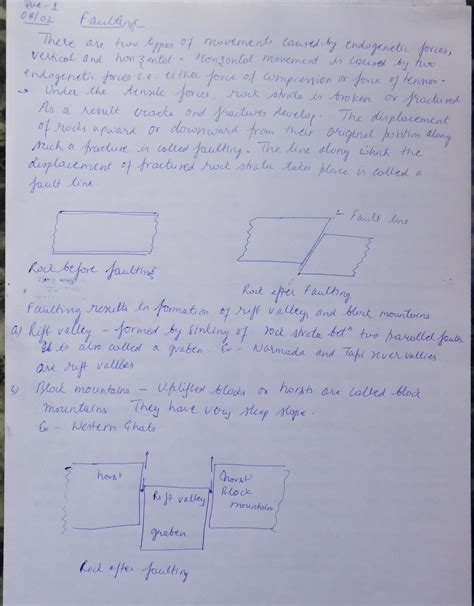 Que-1
08/02
Faulting
There are two types of movements caused by endogenetic forces,
vertical and horizontal. Horizontal movement is caused by two
endogenetic forces i.e. either force of compression or force of tension.
Under the tensile forces, rock strata is broken or fractured
As a result cracks and fractures develop. The displacement
of rocks upward or downward from their original position along
such a fracture is called faulting. The line along which the
displacement of fractured rock strata takes place is called a
fault line.
Fault line
Rock before faulting
Rock after Faulting
Faulting results in formation of rift valleys and block mountains
a) Rift valley - formed by sinking of rock strata betn two parallel faults
It is also called a graben Ex - Narmada and Tapi river vallies
are rift vallies
Block mountains - Uplifted blocks or horsts are called block
mountains They have very steep slope.
Ex - Western Ghats
horst
Rift valley
graben
horst
Block
mountain
Rock after faulting